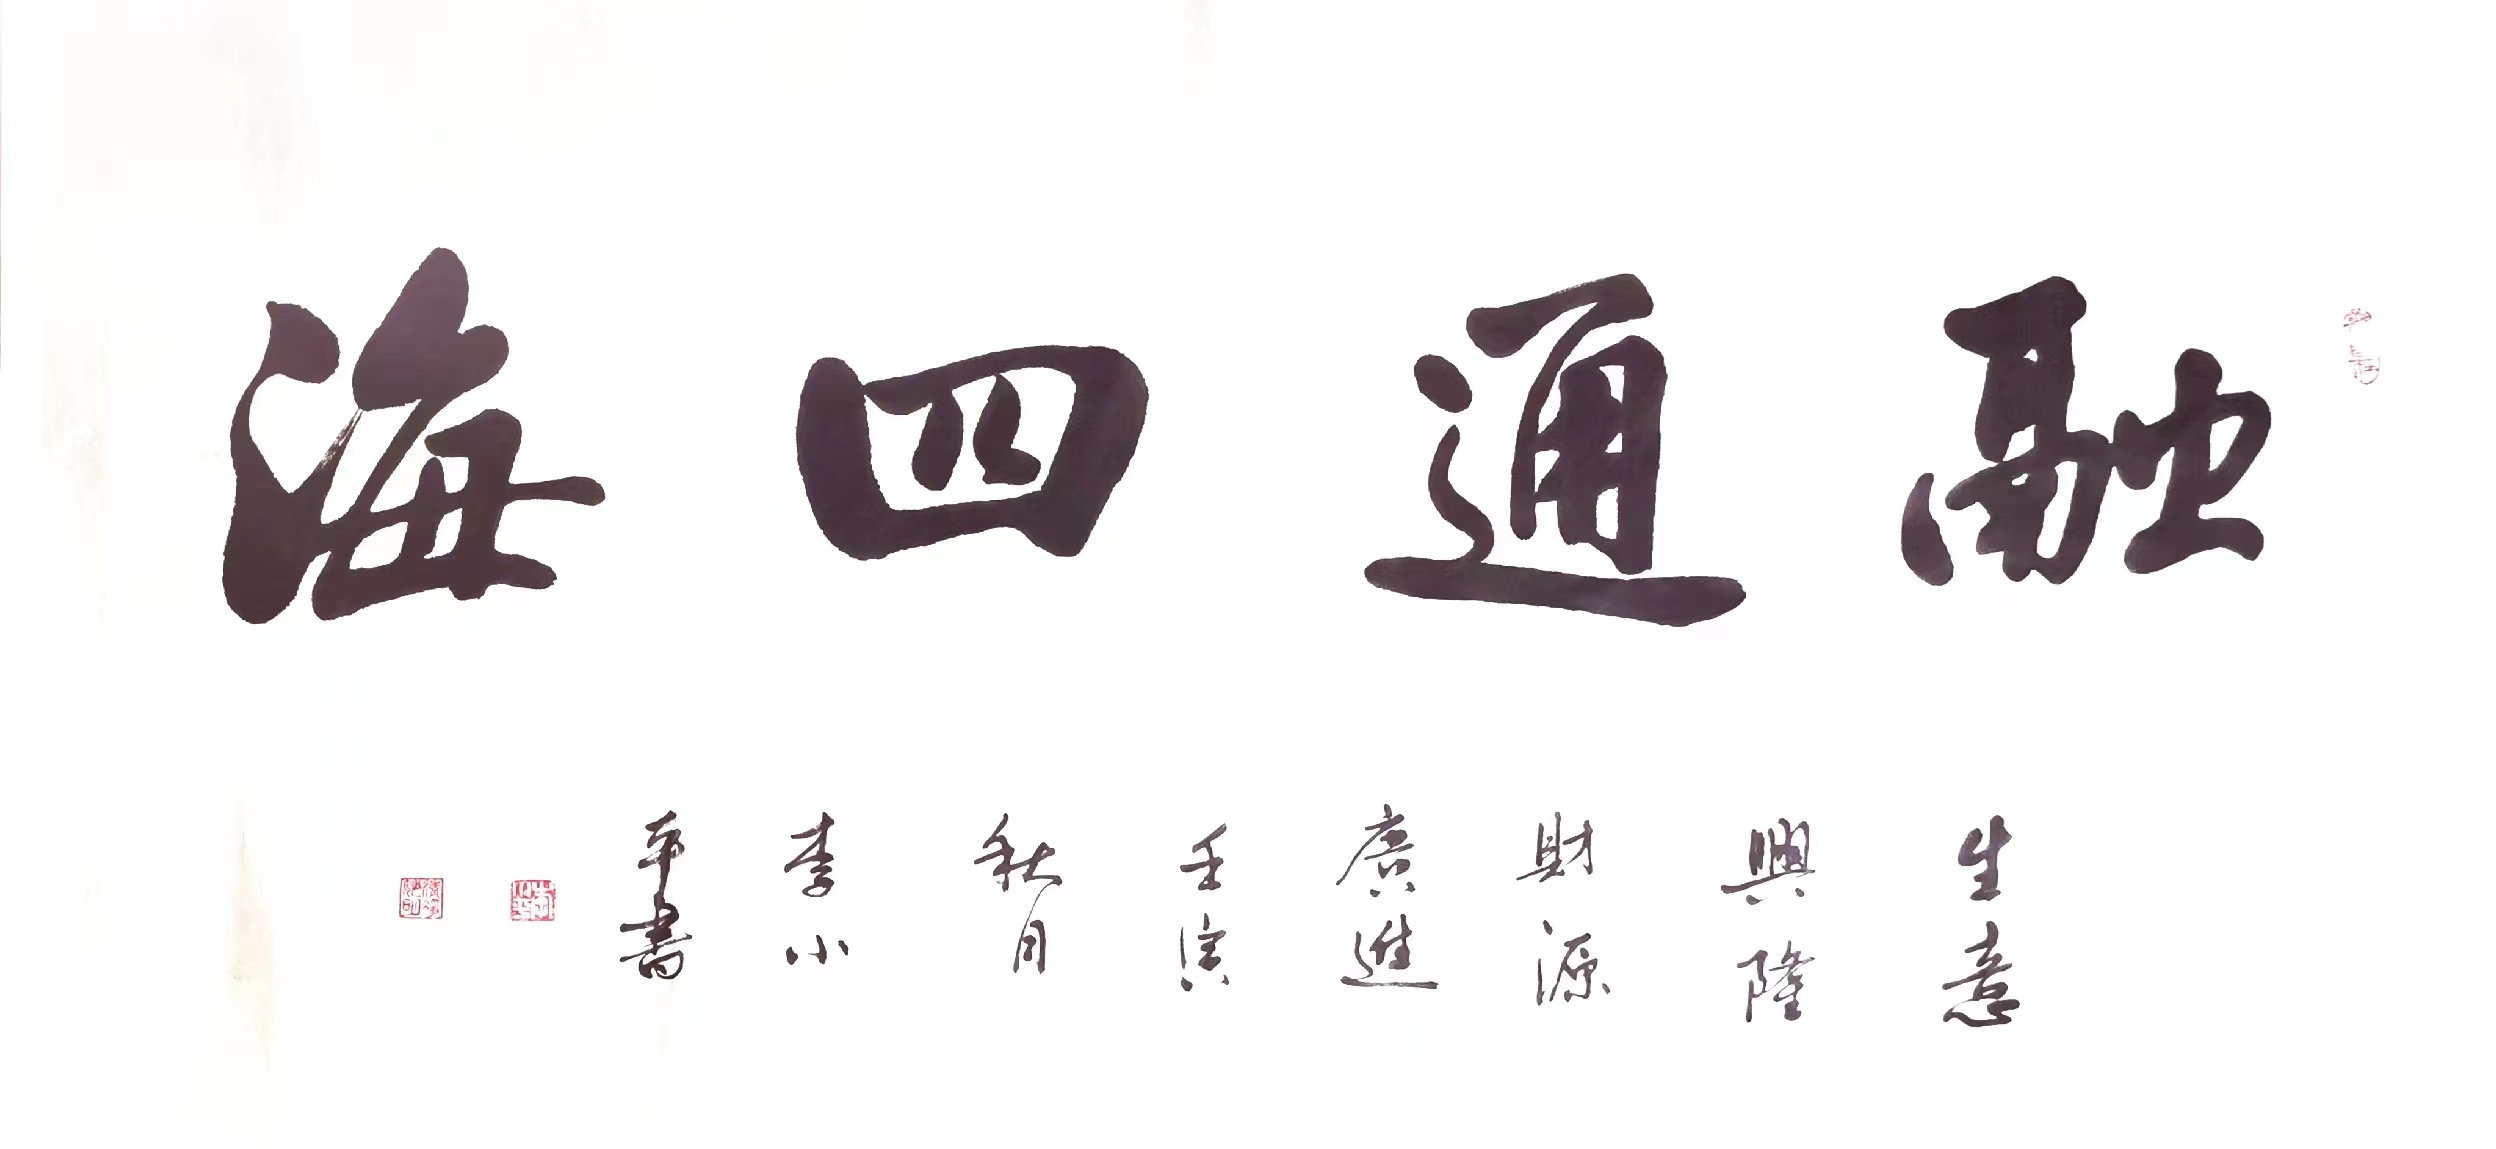 融通四海
生意
興隆
財源
廣進
壬寅
秋月
李小
平書